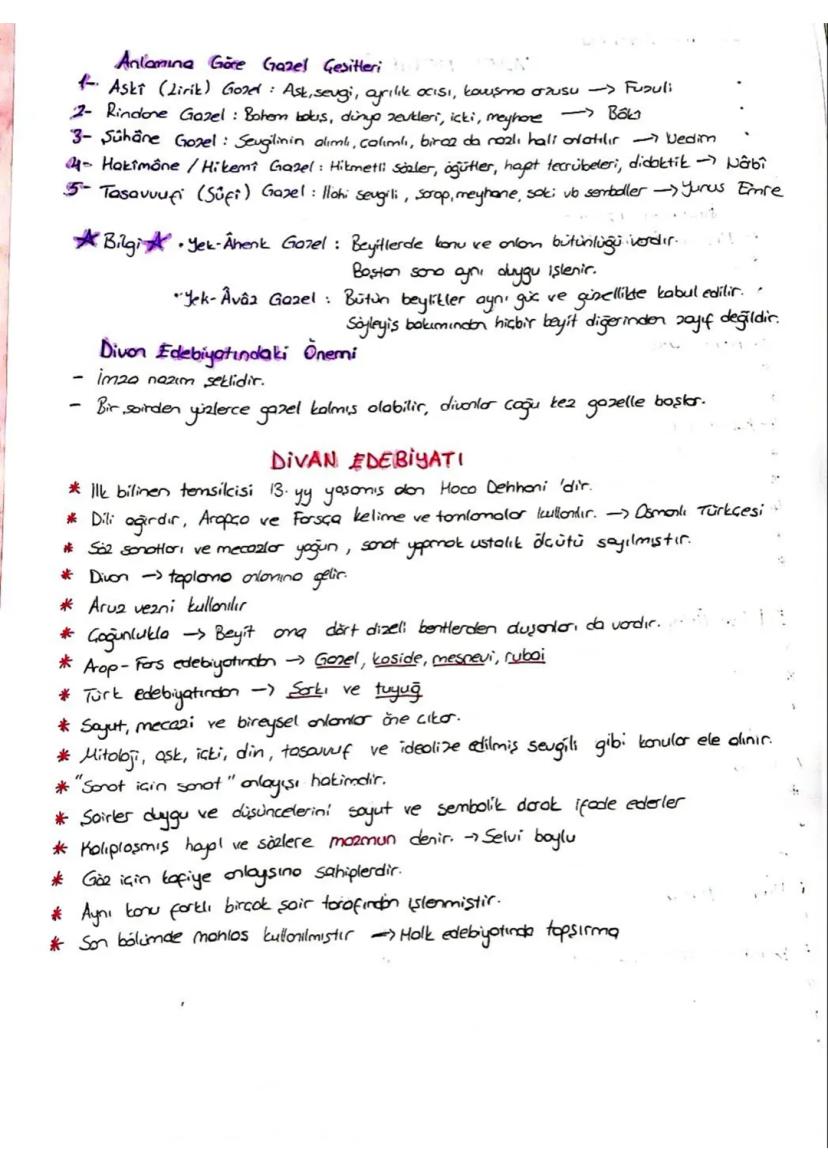 Anlamına Göre Gazel Çeşitleri
1- Aşkî (Lirik) Gazel : Aşk, sevgi, ayrılık acısı, kavuşma arzusu → Fuzuli
2- Rindane Gazel : Bohem bakış, dünya zevkleri, içki, meyhane → Bâki
3- Şûhâne Gazel : Sevgilinin alımlı, çalımlı, biraz da nazlı hali anlatılır → Nedim
4- Hakîmâne / Hikemî Gazel : Hikmetli sözler, öğütler, hayat tecrübeleri, didaktik → Nâbî
5- Tasavvufi (Sûfi) Gazel : İlahi sevgili, şarap, meyhane, saki vb semboller → Yunus Emre
★ Bilgi ★ • Yek-Âhenk Gazel : Beyitlerde konu ve anlam bütünlüğü vardır.
Baştan sona aynı duygu işlenir.
• Yek-Âvâz Gazel : Bütün beylikler aynı güç ve güzellikte kabul edilir.
Söyleyiş bakımından hiçbir beyit diğerinden zayıf değildir.
Divan Edebiyatındaki Önemi
- İmza nazım şeklidir.
- Bir şairden yüzlerce gazel kalmış olabilir, divanlar çoğu kez gazelle başlar.
DİVAN EDEBİYATI
* İlk bilinen temsilcisi 13. yy yaşamış olan Hoca Dehhani 'dir.
* Dili ağırdır, Arapça ve Farsça kelime ve tamlamalar kullanılır. → Osmanlı Türkçesi
* Söz sanatları ve mecazlar yoğun, sanat yapmak ustalık ölçütü sayılmıştır.
* Divan → toplama anlamına gelir.
* Aruz vezni kullanılır
* Çoğunlukla → Beyit ama dört dizeli bentlerden oluşanları da vardır.
* Arap-Fars edebiyatından → Gazel, kaside, mesnevi, rubai
* Türk edebiyatından → Şarkı ve tuyuğ
* Soyut, mecazi ve bireysel anlamlar öne çıkar.
* Mitoloji, aşk, içki, din, tasavvuf ve idealize edilmiş sevgili gibi konular ele alınır.
* "Sanat için sanat" anlayışı hakimdir.
* Şairler duygu ve düşüncelerini soyut ve sembolik olarak ifade ederler
* Kalıplaşmış hayal ve sözlere mazmun denir. → Selvi boylu
* Göz için kafiye anlayışına sahiplerdir.
* Aynı konu farklı birçok şair tarafından işlenmiştir.
* Son bölümde mahlas kullanılmıştır → Halk edebiyatında tapşırma